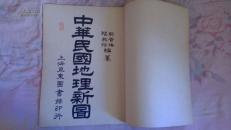 編纂
中華民國地理新圖
上海亞東圖書館印行